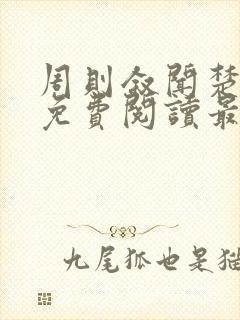 周則叙聞楚
免費閱讀最
九尾狐也是猫